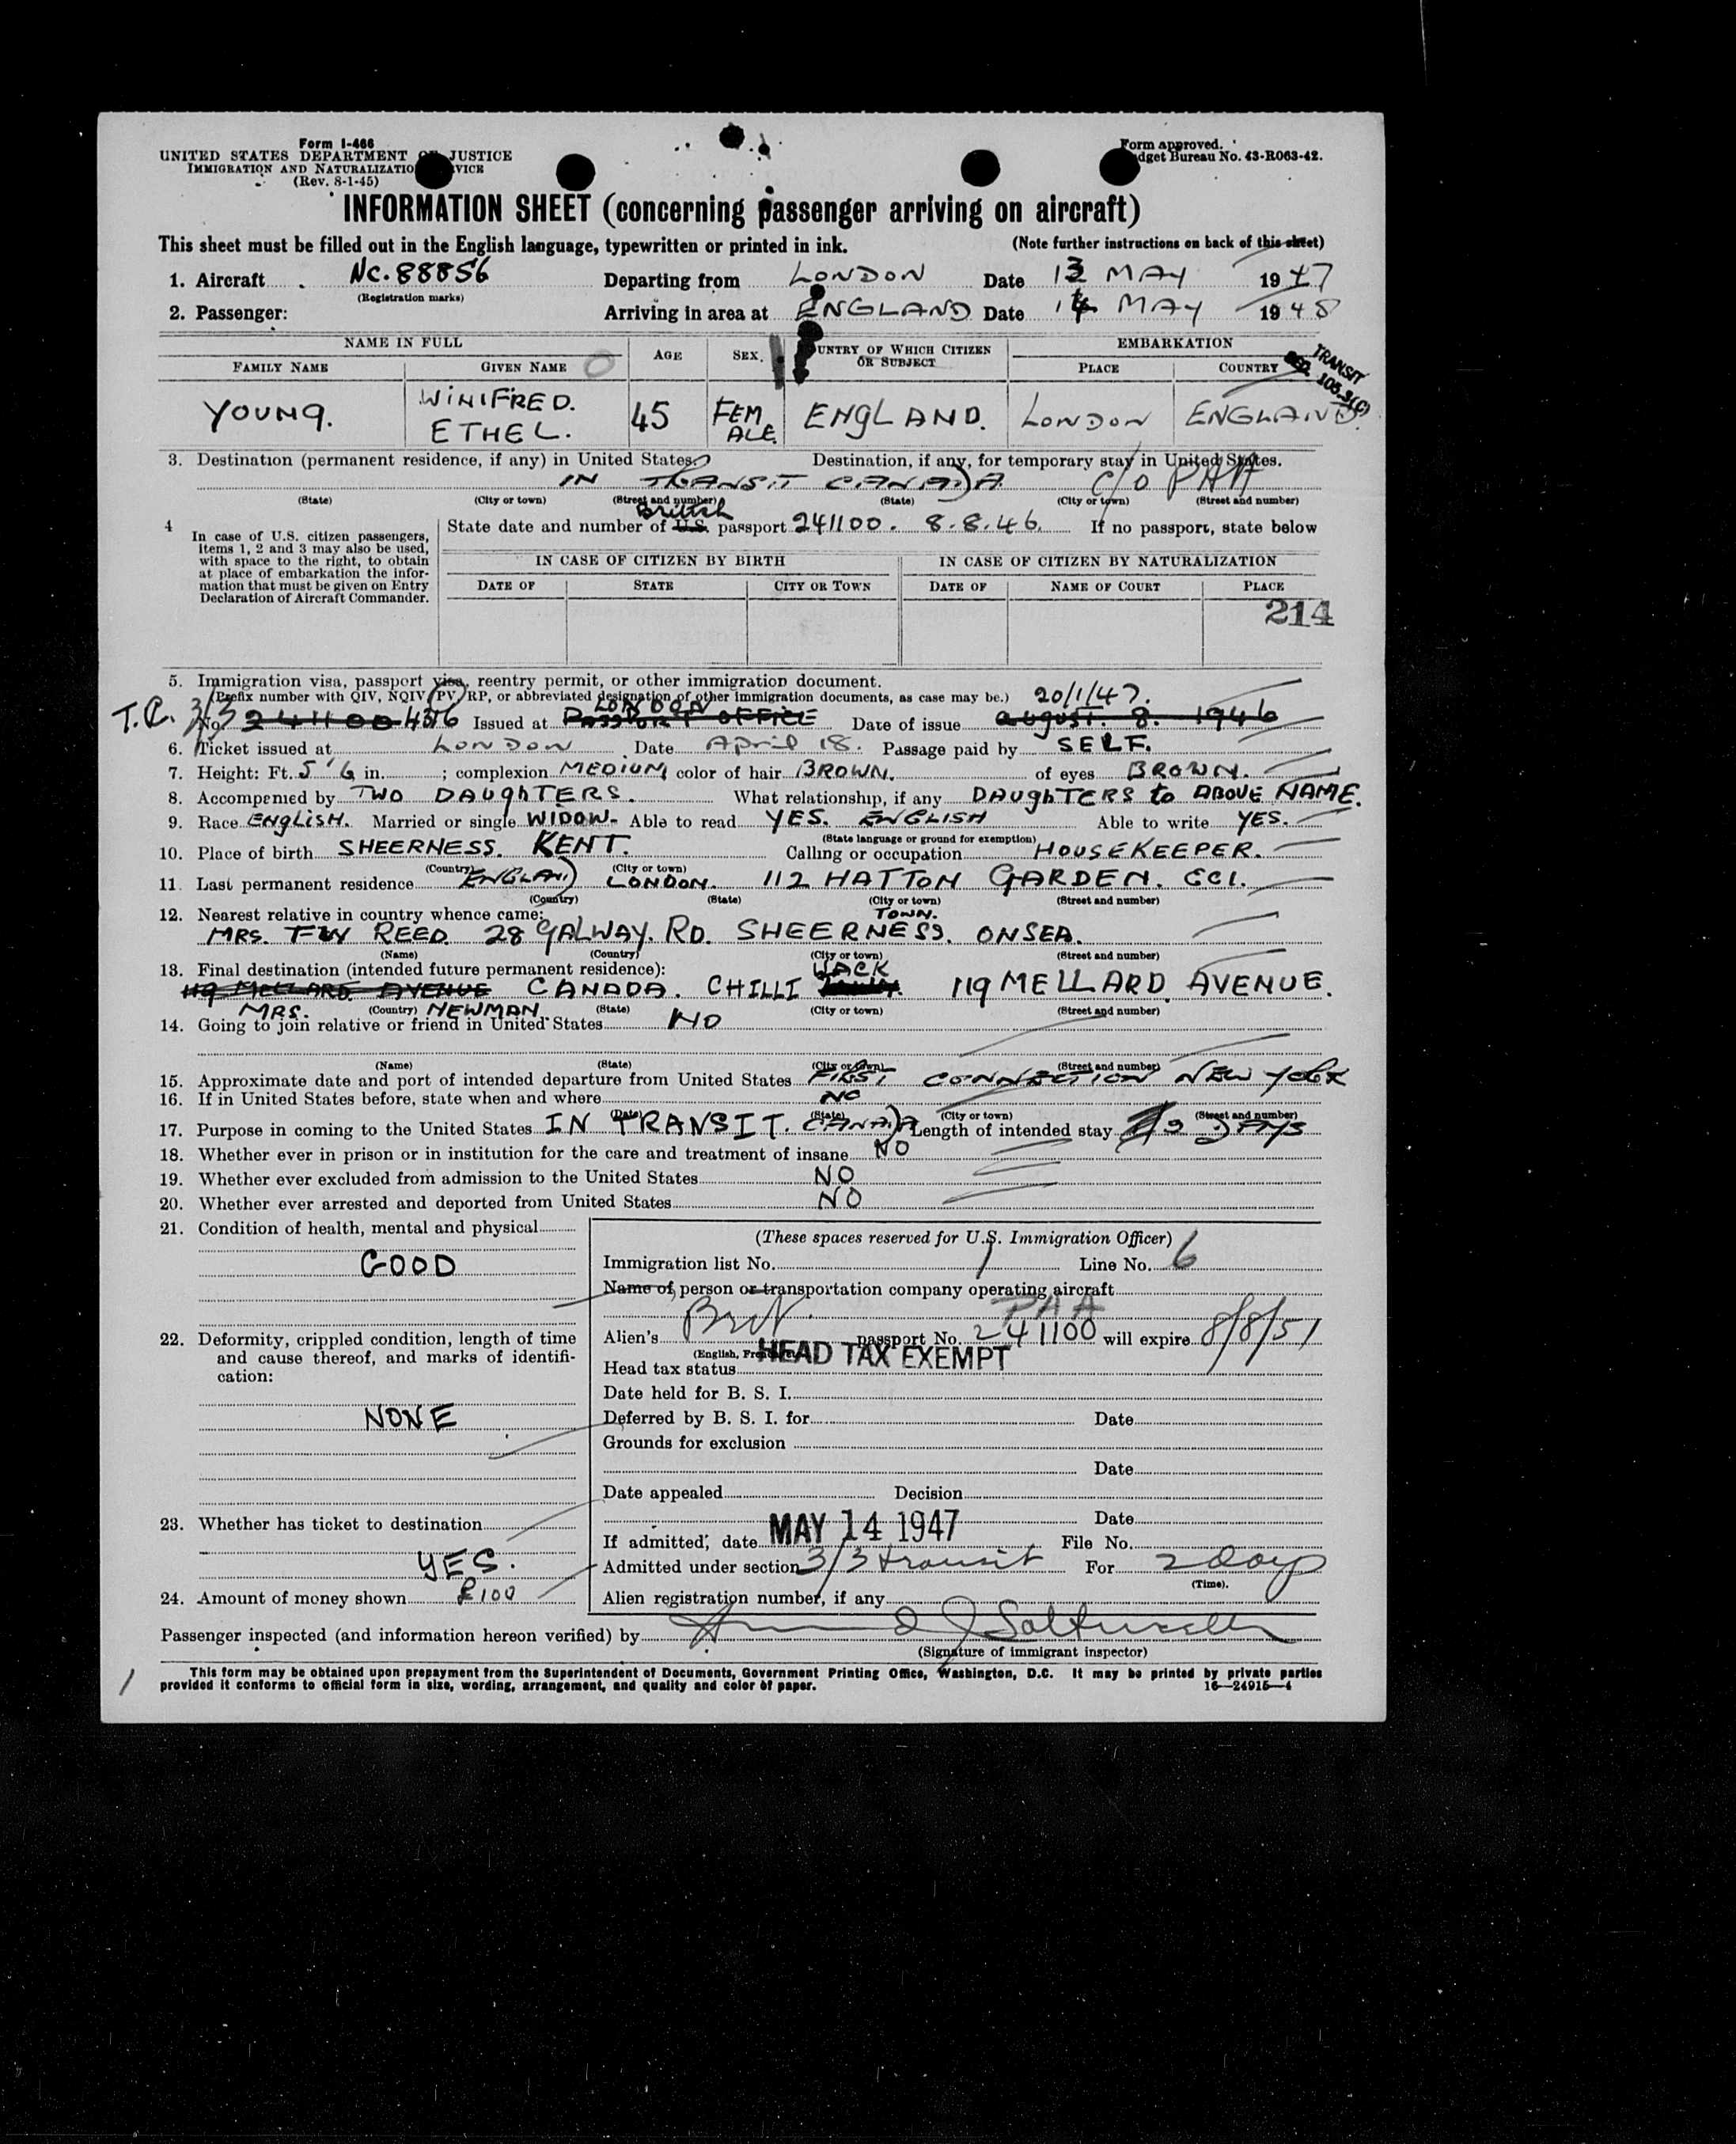 Form I-466
UNITED STATES DEPARTMENT OF JUSTICE
IMMIGRATION AND NATURALIZATION SERVICE
(Rev. 8-1-45)
Form approved.
Budget Bureau No. 43-R063-42.
INFORMATION SHEET (concerning passenger arriving on aircraft)
This sheet must be filled out in the English language, typewritten or printed in ink. (Note further instructions on back of this sheet)
1. Aircraft NC.88856 Departing from LONDON Date 13 MAY 1947
(Registration marks)
2. Passenger: Arriving in area at ENGLAND Date 14 MAY 1948
NAME IN FULL AGE SEX. COUNTRY OF WHICH CITIZEN OR SUBJECT EMBARKATION
FAMILY NAME GIVEN NAME PLACE COUNTRY
TRANSIT
SEC. 105.3(C)
YOUNG. WINIFRED. ETHEL. 45 FEMALE. ENGLAND. LONDON ENGLAND.
3. Destination (permanent residence, if any) in United States. Destination, if any, for temporary stay in United States.
IN TRANSIT CANADA c/o PAA
(State) (City or town) (Street and number) (State) (City or town) (Street and number)
4 In case of U.S. citizen passengers, items 1, 2 and 3 may also be used, with space to the right, to obtain at place of embarkation the information that must be given on Entry Declaration of Aircraft Commander.
British
State date and number of U.S. passport 241100. 8.8.46. If no passport, state below
IN CASE OF CITIZEN BY BIRTH IN CASE OF CITIZEN BY NATURALIZATION
DATE OF STATE CITY OR TOWN DATE OF NAME OF COURT PLACE
214
5. Immigration visa, passport visa, reentry permit, or other immigration document.
(Prefix number with QIV, NQIV, PV, RP, or abbreviated designation of other immigration documents, as case may be.) 20/1/47.
LONDON
T.C. 3/3 No. 241100 Issued at PASSPORT OFFICE Date of issue AUGUST. 8. 1946
6. Ticket issued at LONDON Date April 18. Passage paid by SELF.
7. Height: Ft. 5'6 in. ; complexion MEDIUM color of hair BROWN. of eyes BROWN.
8. Accompanied by TWO DAUGHTERS. What relationship, if any DAUGHTERS to ABOVE NAME.
9. Race ENGLISH. Married or single WIDOW. Able to read YES. ENGLISH Able to write YES.
(State language or ground for exemption)
10. Place of birth SHEERNESS. KENT. Calling or occupation HOUSEKEEPER.
(Country) (City or town)
11. Last permanent residence ENGLAND LONDON. 112 HATTON GARDEN. EC1.
(Country) (State) (City or town) (Street and number)
12. Nearest relative in country whence came: TOWN.
MRS. FW REED. 28 GALWAY. RD. SHEERNESS. ONSEA.
(Name) (Country) (City or town) (Street and number)
13. Final destination (intended future permanent residence): WACK
119 MELLARD. AVENUE CANADA. CHILLI 119 MELLARD. AVENUE.
MRS. NEWMAN. (Country) (State) (City or town) (Street and number)
14. Going to join relative or friend in United States NO
(Name) (State) (City or town) (Street and number)
15. Approximate date and port of intended departure from United States FIRST CONNECTION NEW YORK
16. If in United States before, state when and where NO
(Date) (State) (City or town) (Street and number)
17. Purpose in coming to the United States IN TRANSIT. CANADA Length of intended stay 2 DAYS
18. Whether ever in prison or in institution for the care and treatment of insane NO
19. Whether ever excluded from admission to the United States NO
20. Whether ever arrested and deported from United States NO
21. Condition of health, mental and physical
GOOD
22. Deformity, crippled condition, length of time and cause thereof, and marks of identification:
NONE
23. Whether has ticket to destination
YES.
24. Amount of money shown £100
(These spaces reserved for U.S. Immigration Officer)
Immigration list No. 1 Line No. 6
Name of person or transportation company operating aircraft
PAA
Alien's Brit. passport No. 241100 will expire 8/8/51
(English, French, etc.)
Head tax status HEAD TAX EXEMPT
Date held for B. S. I.
Deferred by B. S. I. for Date
Grounds for exclusion
Date
Date appealed Decision
Date
If admitted, date MAY 14 1947 File No.
Admitted under section 3/3 transit For 2 days
(Time).
Alien registration number, if any
Passenger inspected (and information hereon verified) by
(Signature of immigrant inspector)
This form may be obtained upon prepayment from the Superintendent of Documents, Government Printing Office, Washington, D.C. It may be printed by private parties
provided it conforms to official form in size, wording, arrangement, and quality and color of paper. 16—24915—4